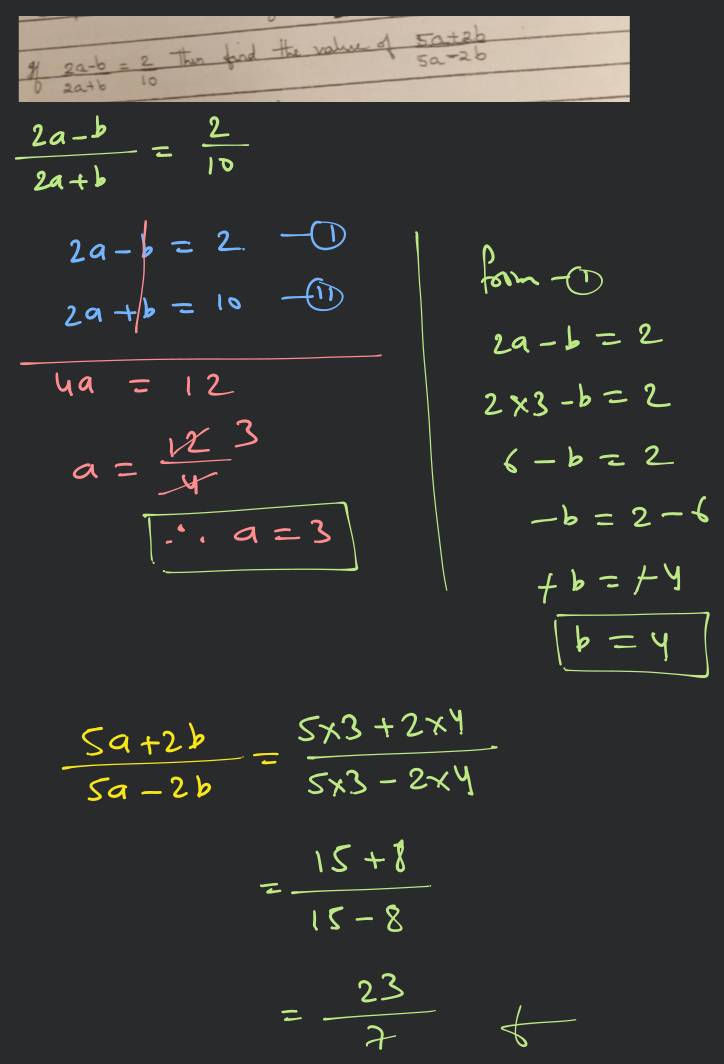 If 2a-b/2a+b = 2/10 Then find the value of 5a+2b/5a-2b
2a-b/2a+b = 2/10
2a-b = 2. —①
2a+b = 10 —⑪
4a = 12
a = 12/4 3
∴ a = 3
form -①
2a-b = 2
2×3-b = 2
6-b = 2
-b = 2-6
+b = +4
b = 4
5a+2b/5a-2b = 5×3+2×4/5×3-2×4
= 15+8/15-8
= 23/7